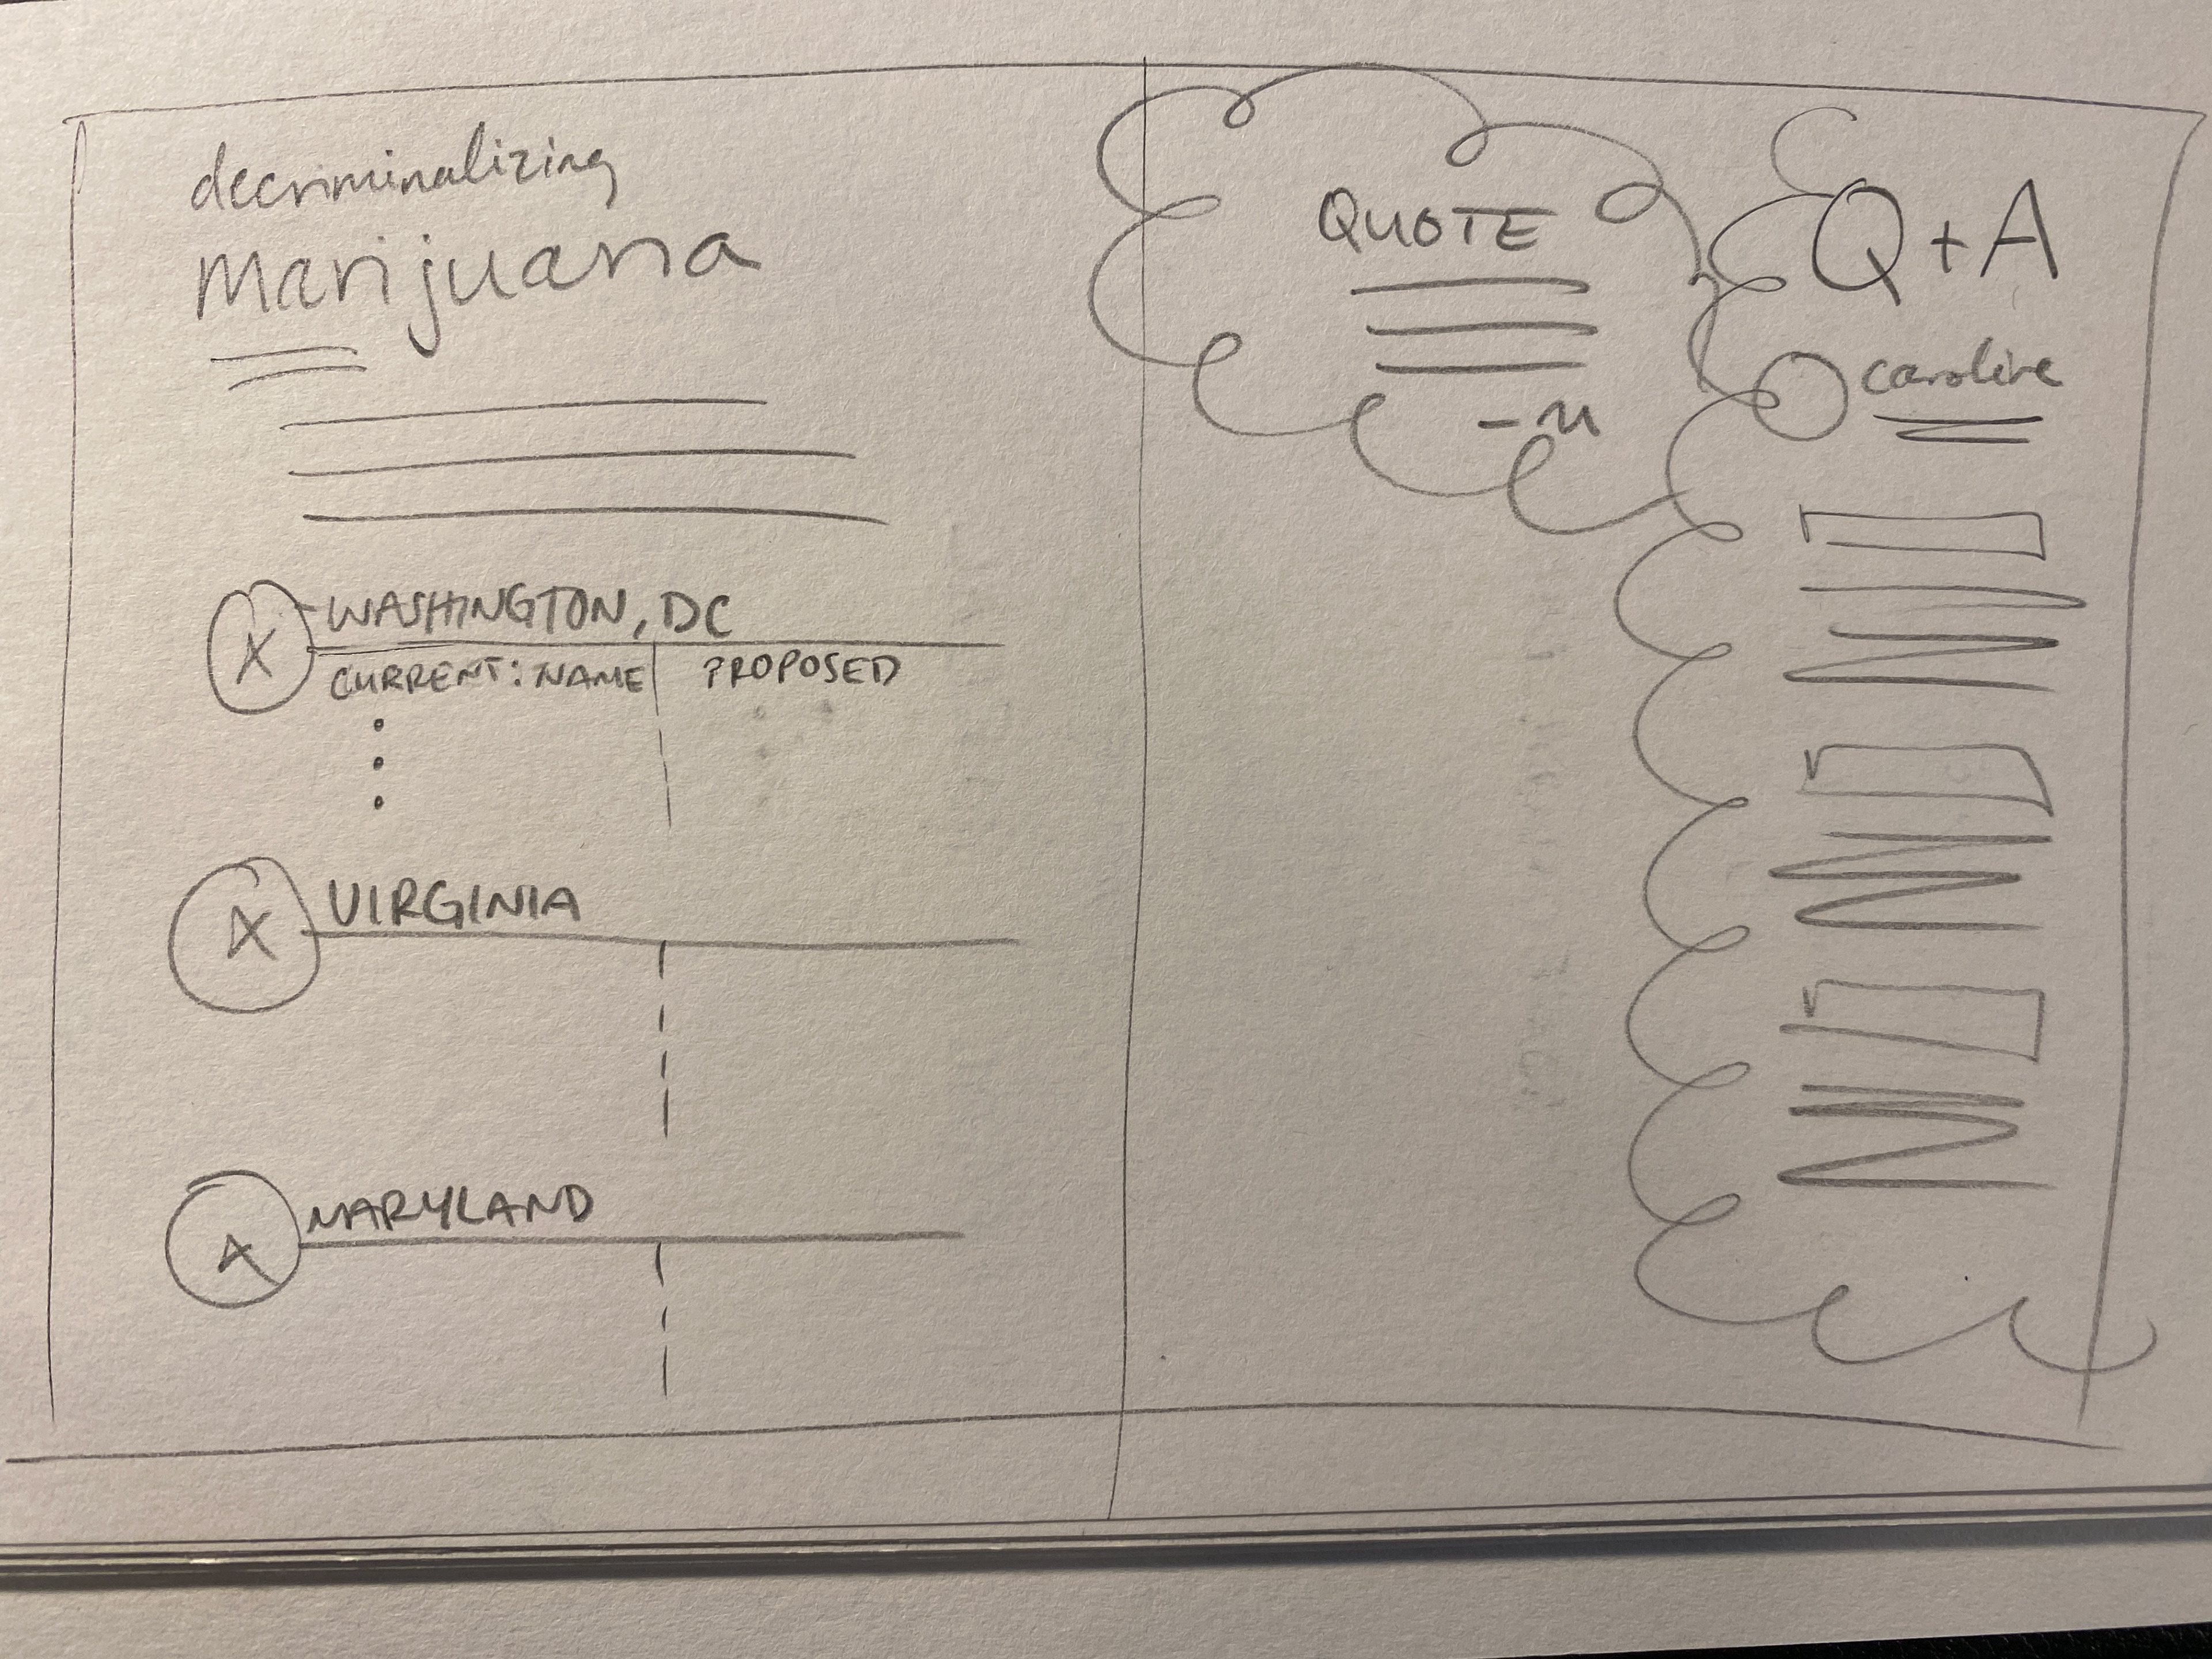 decriminalizing
marijuana
WASHINGTON, DC
CURRENT: NAME
PROPOSED
VIRGINIA
MARYLAND
QUOTE
Q + A
caroline